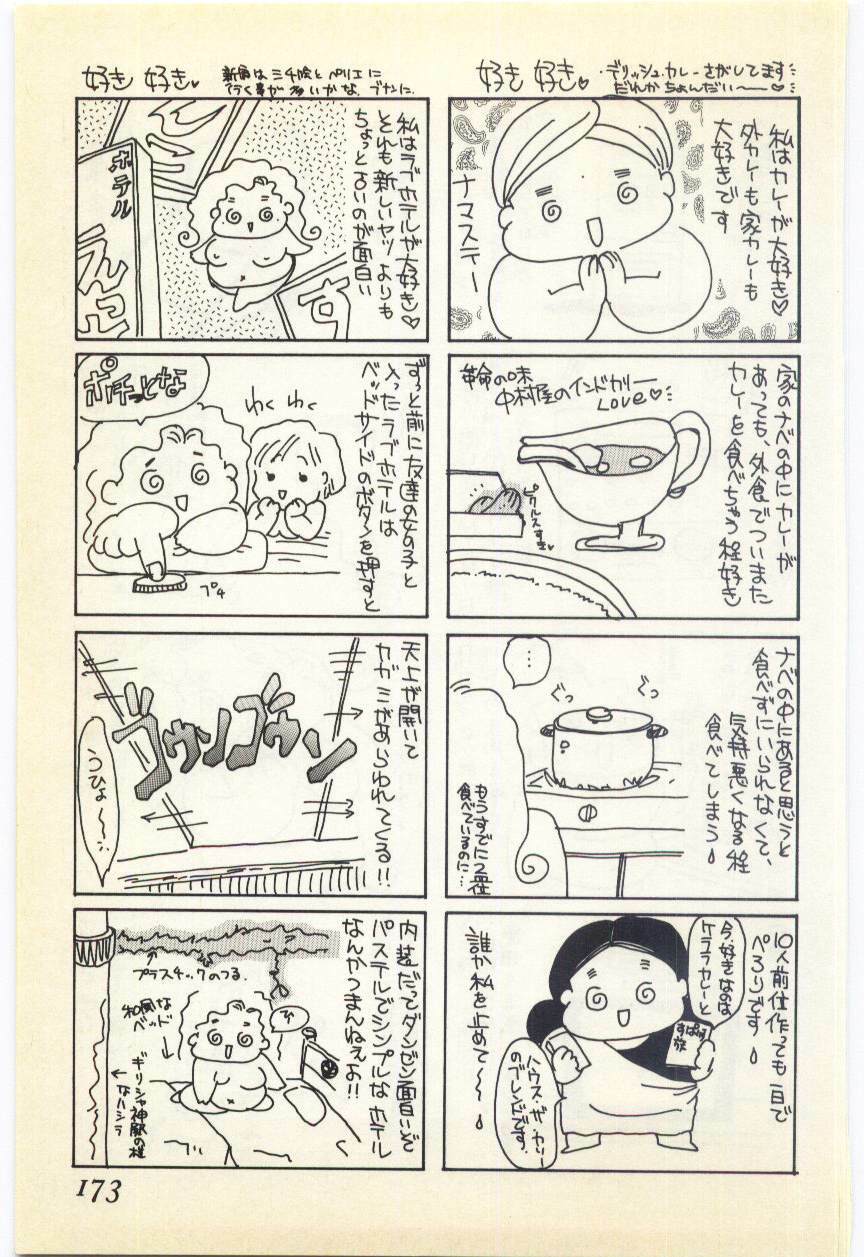 好き 好き♥
・デリッシュ・カレーさがしてます
だれかちょんだい〜♥
私はカレーが大好き♥
外カレーも家カレーも
大好きです
ナマステー
家のナベの中にカレーが
あっても、外食でついまた
カレーを食べちゃう程好き
革命の味
中村屋のインドカリー
LOVE♡
ピクルスすき♥
ナベの中にあると思うと
食べずにいられなくて、
気持悪くなる程
食べてしまう
…
ぐっ
ぐっ
もうすでに
食べているのに…
10人前仕作っても一日で
ぺろりです
今、好きなのは
ケララカレーと
ハウス・ザ・カリー
のブレンドです。
誰か私を止めて〜〜
好き 好き♥
新宿は三千院とペリエに
行く事が多いかな。ブナンに
私はラブホテルが大好き♥
それも新しいヤツよりも
ちょっと古いのが面白い
ホテル
えっ
ずっと前に友達の女の子と
入ったラブホテルは
ベッドサイドのボタンを押すと
わく わく
ポチっとな
プチ
天上が開いて
カガミがあらわれてくる!!
ゴゥンゴゥン
うひょ〜
内装だってダンゼン面白いぞ
パステルでシンプルなホテル
なんかつまんねえよ!!
プラスチックのつる。
和風な
ベッド
ギリシャ神殿の様
なハシラ
173